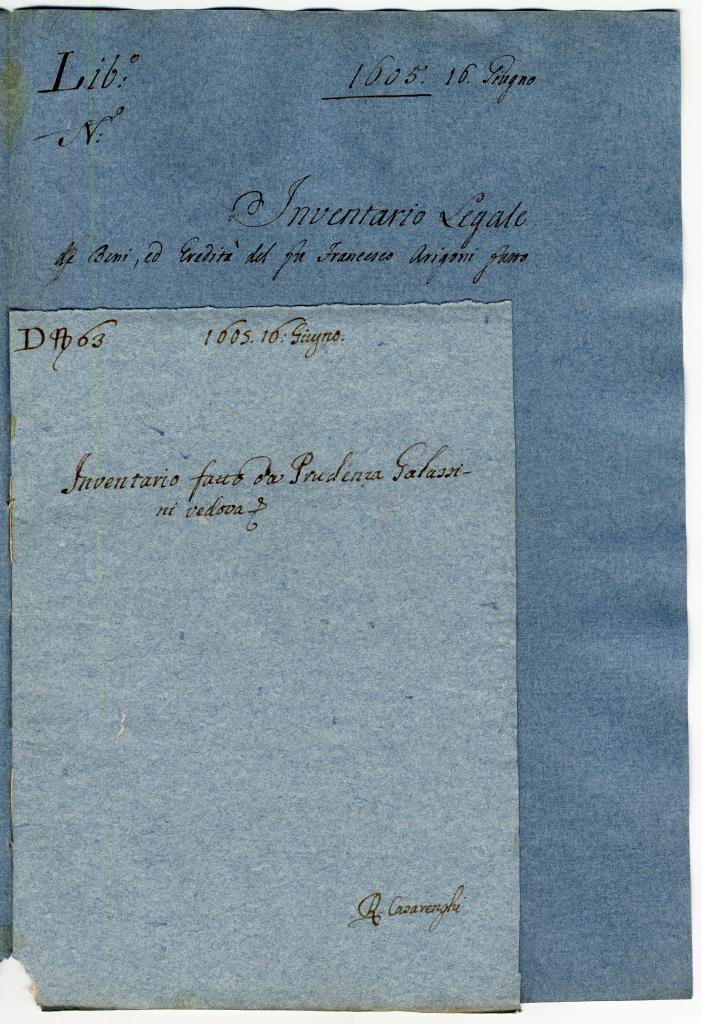 Lib.º
1605. 16. Giugno
N.º
Inventario Legale
de Beni, ed Eredità del fu Francesco Arigoni fatto
D 63
1605. 16: Giugno.
Inventario fatto da Prudenza Galassi-
ni vedova
R. Casarenghi